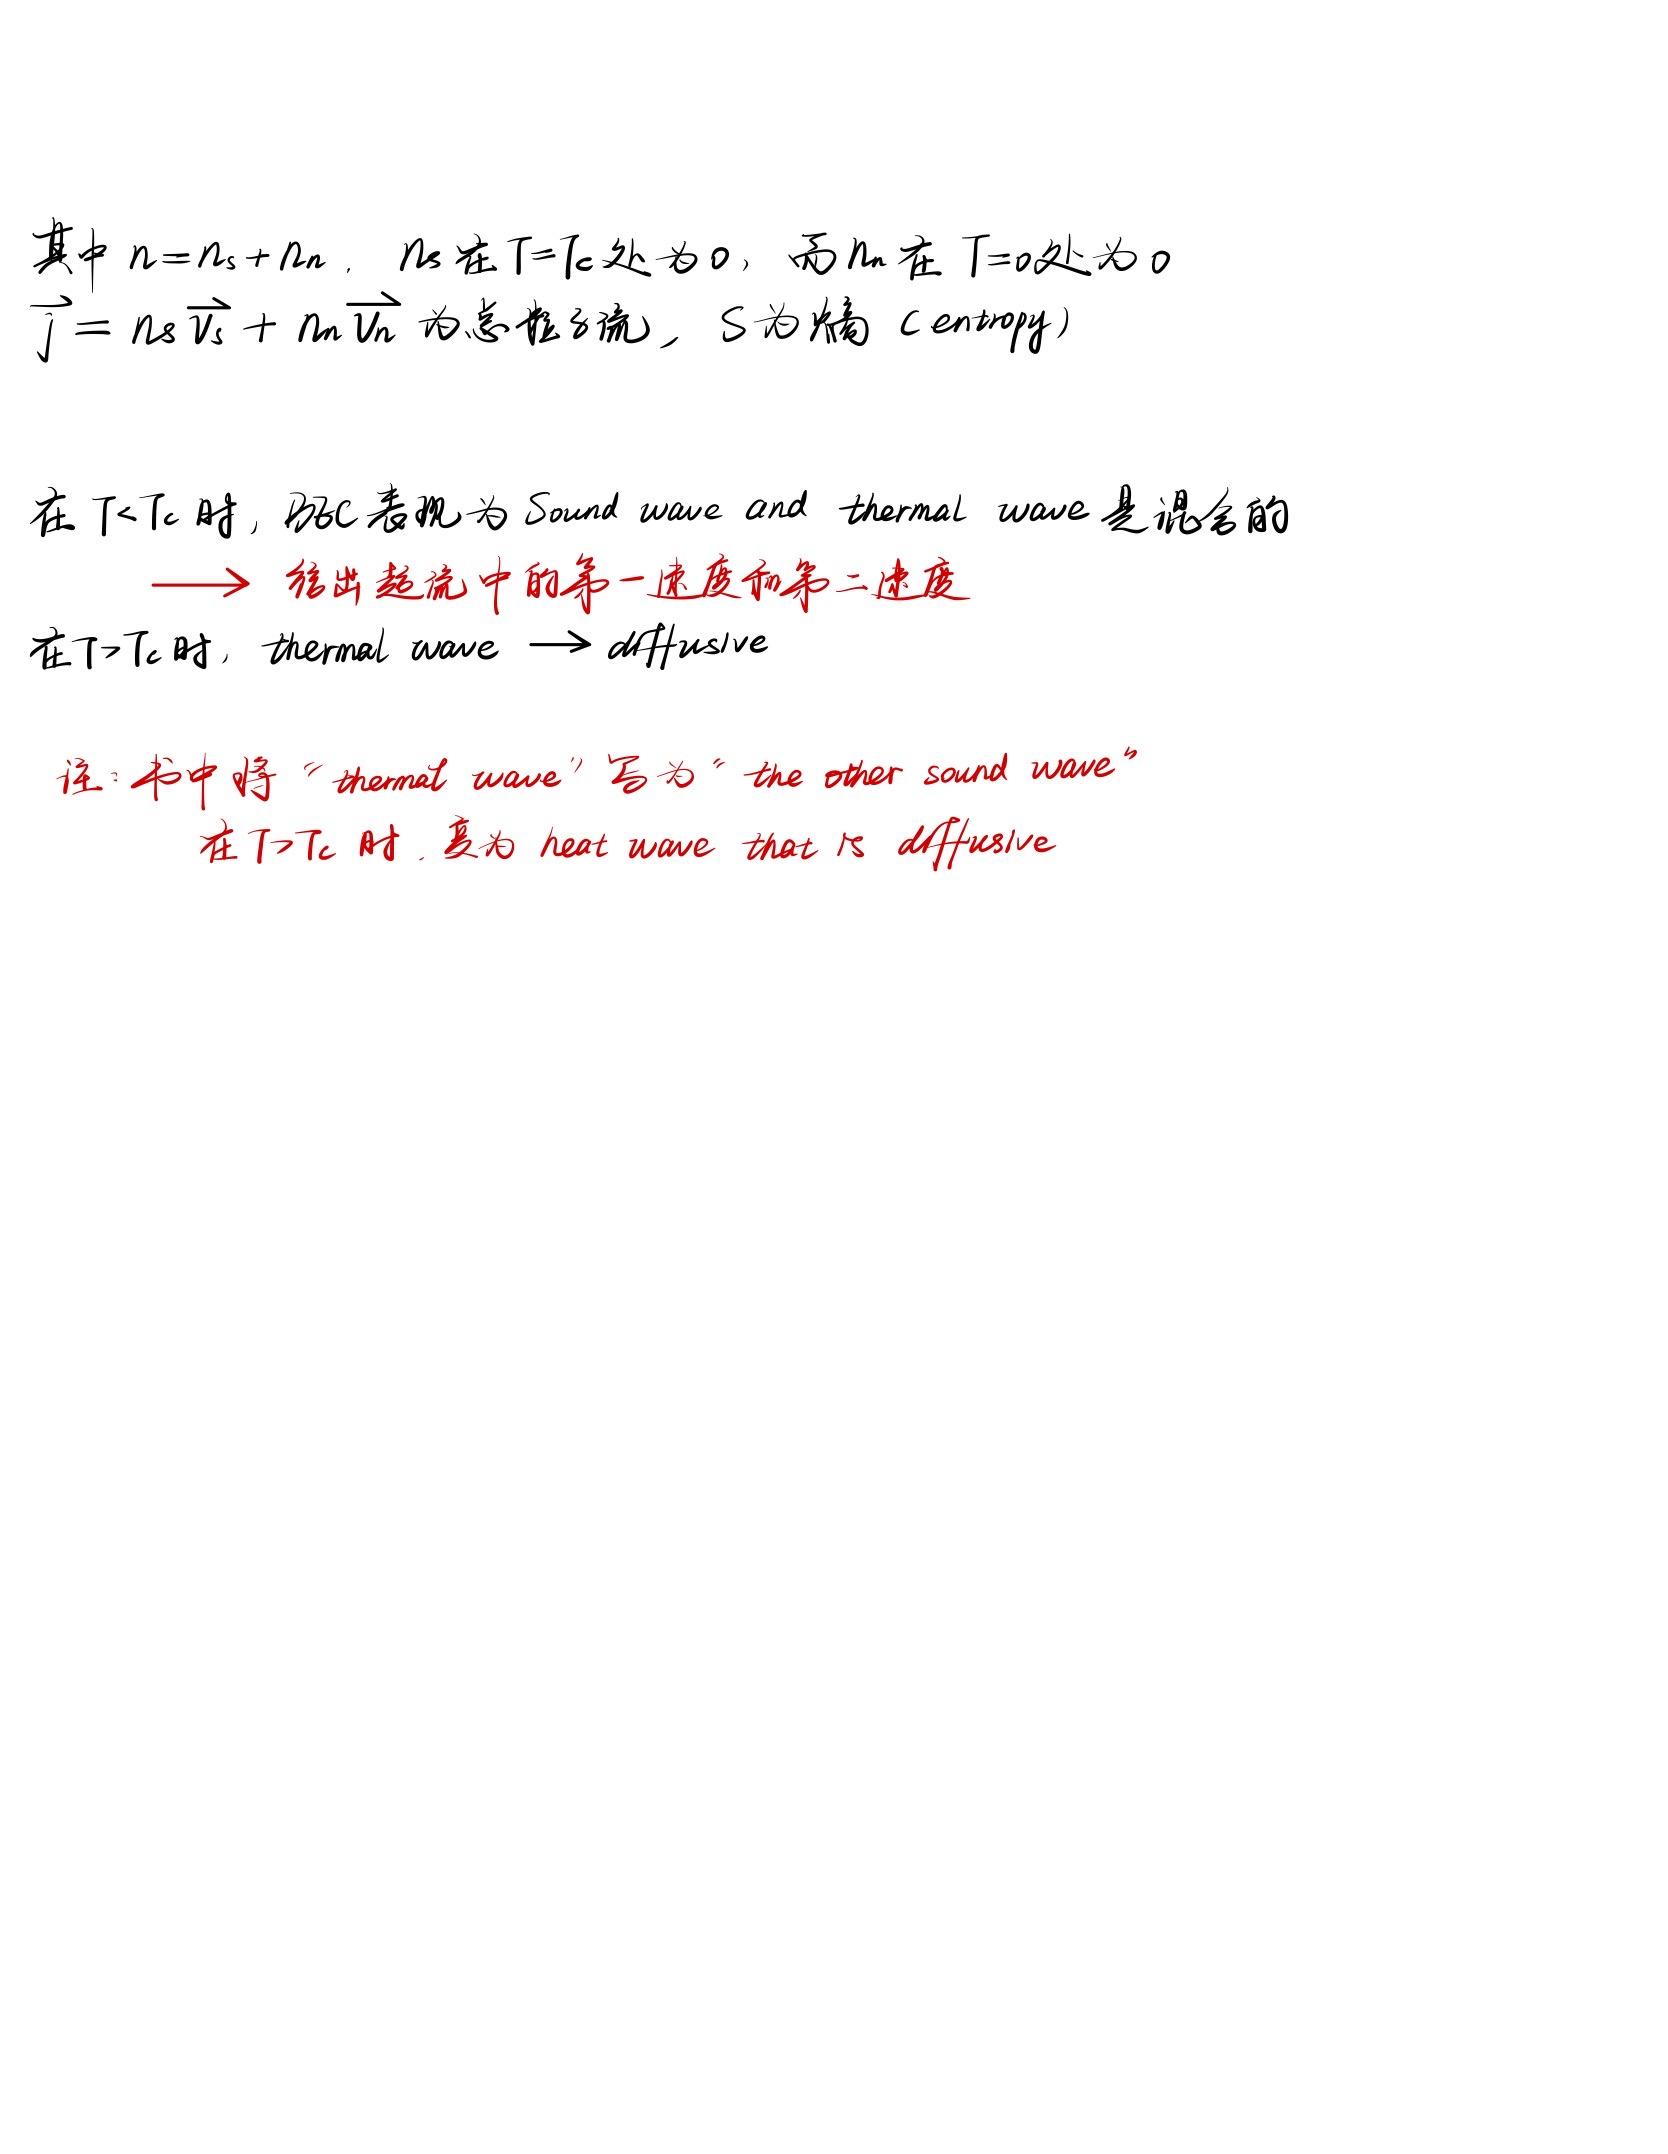 其中 n=nₛ+nₙ, nₛ在T=T꜀处为0, 而nₙ在T=0处为0
j⃗ = nₛv⃗ₛ + nₙv⃗ₙ 为总粒子流, S为熵 (entropy)
在 T<T꜀ 时, BEC表现为 Sound wave and thermal wave 是混合的
→ 给出超流中的第一速度和第二速度
在T>T꜀时, thermal wave → diffusive
注: 书中将 "thermal wave" 写为 "the other sound wave"
在T>T꜀ 时, 变为 heat wave that is diffusive